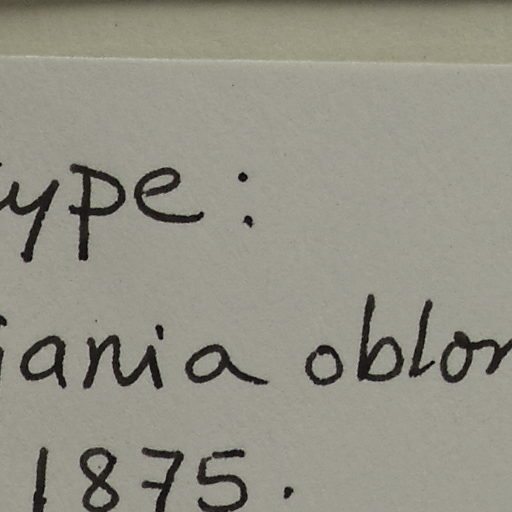 ype:
iania oblon
1875.